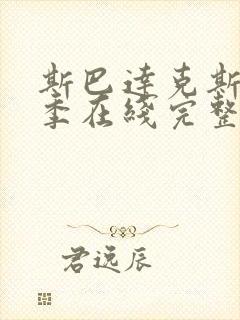 斯巴达克斯
季在线完整
君远辰